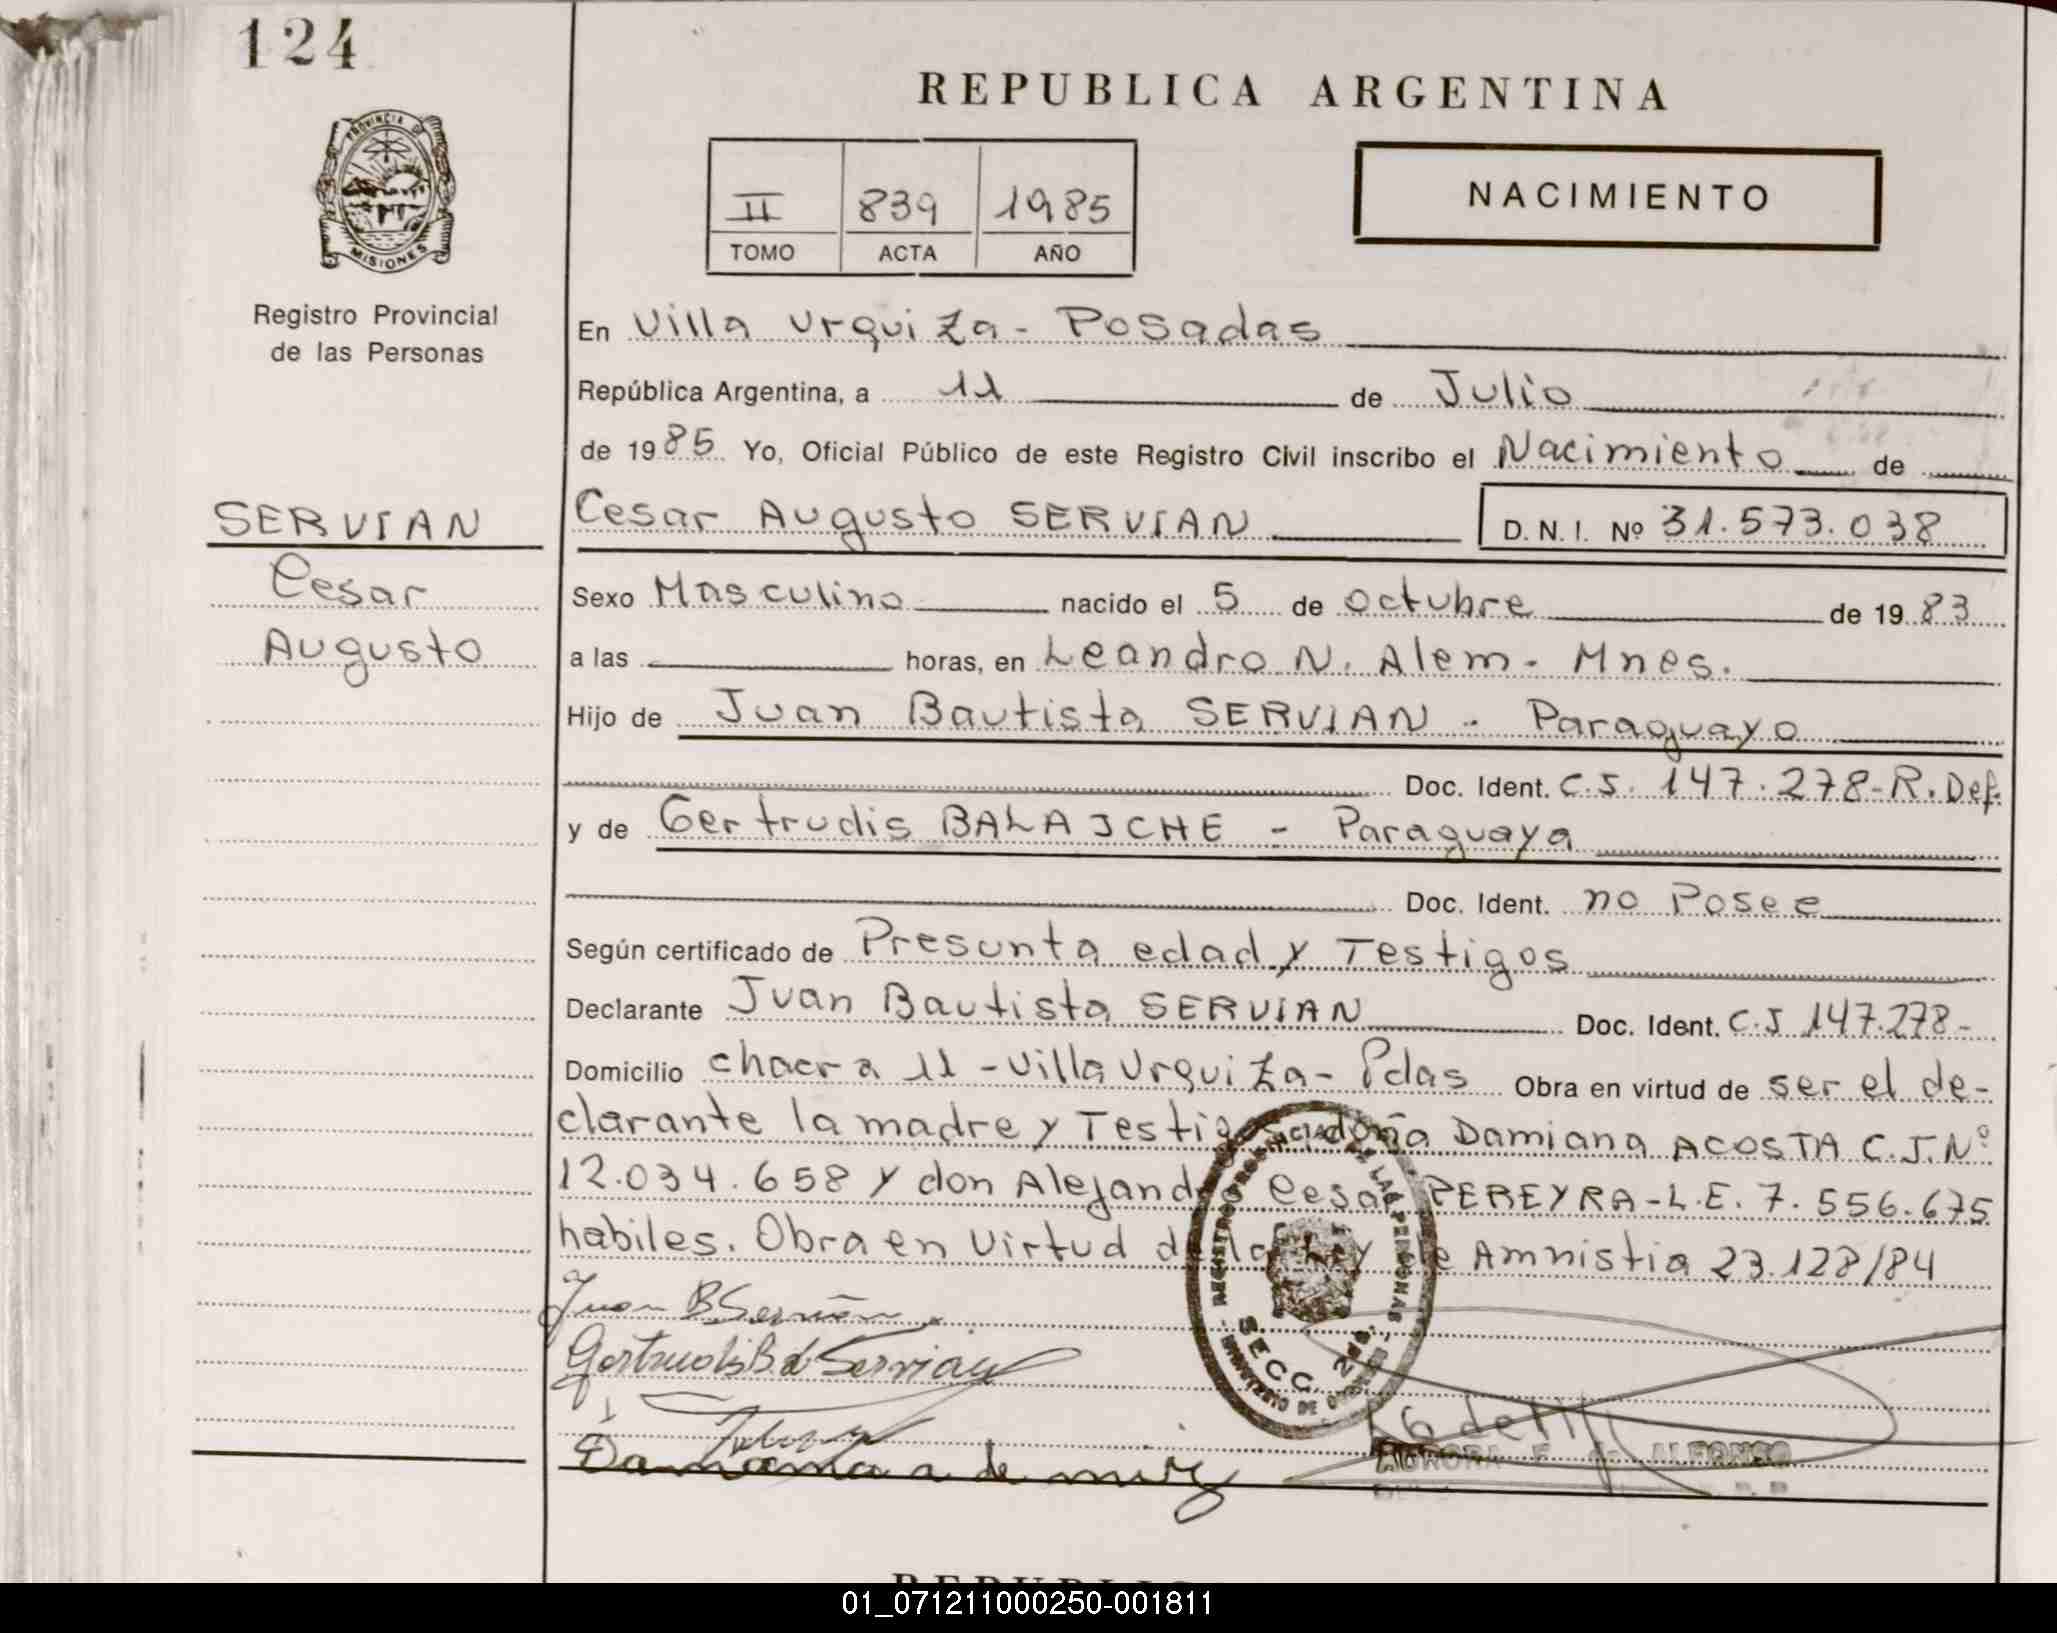 124
REPUBLICA ARGENTINA
PROVINCIA DE
MISIONES
II 839 1985
TOMO ACTA AÑO
NACIMIENTO
Registro Provincial
de las Personas
En Villa Urquiza - Posadas
República Argentina, a 11 de Julio
de 1985 Yo, Oficial Público de este Registro Civil inscribo el Nacimiento de
SERVIAN
Cesar Augusto SERVIAN D.N.I. Nº 31.573.038
Cesar
Sexo Masculino nacido el 5 de octubre de 1983
Augusto
a las horas, en Leandro N. Alem - Mnes.
Hijo de Juan Bautista SERVIAN - Paraguayo
Doc. Ident. C.I. 147.278-R.Def.
y de Gertrudis BALAICHE - Paraguaya
Doc. Ident. no Posee
Según certificado de Presunta edad y Testigos
Declarante Juan Bautista SERVIAN Doc. Ident. C.I 147.278-
Domicilio chacra 11 - Villa Urquiza - Pdas Obra en virtud de ser el de-
clarante la madre y Testigos doña Damiana ACOSTA C.I.Nº
12.034.658 y don Alejandro Cesar PEREYRA - L.E. 7.556.675
habiles. Obra en Virtud de la Ley de Amnistia 23.128/84
Juan B Servián
Gertrudis B de Servian
Damiana a de
REGISTRO PROVINCIAL DE LAS PERSONAS
SECC. 2
AURORA F. de ALFONSO
01_071211000250-001811